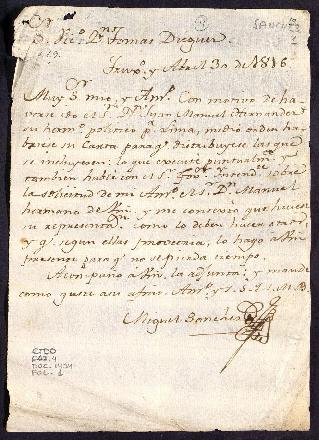 Tomas Dieguez
Truxo. y Abril 30 de 1816
Muy S. mio, y Amo. Con motivo de ha-
verse ido el Sr. Dn. Juan Manuel Hernandez
su hermo. politico pa. Lima, me dio orden
su Carta para qe. distribuyese las que
se incluyeron: lo que execute puntualmte. y
tambien hablé con el Sr. sobre
la solicitud de mi Amo. el Sr. Dn. Manuel
hermano de y me contexto que
su representa. como lo deben hacer
y qe. segun ellas lo hago
presente para qe. no se pierda tiempo.
Acompaño á la adjunta: y mande
como guste a su afmo. Amo. y S. S. Q. S. M. B.
Miguel Sanchez
CTDO
DOC. 1424
FOL. 1